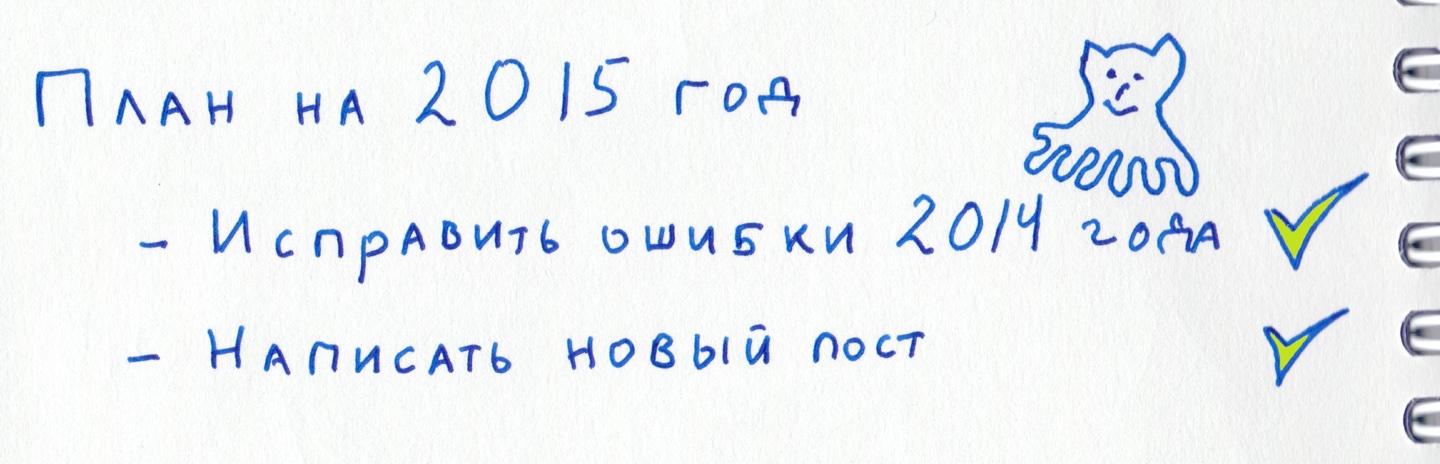 План на 2015 год
- Исправить ошибки 2014 года
- Написать новый пост